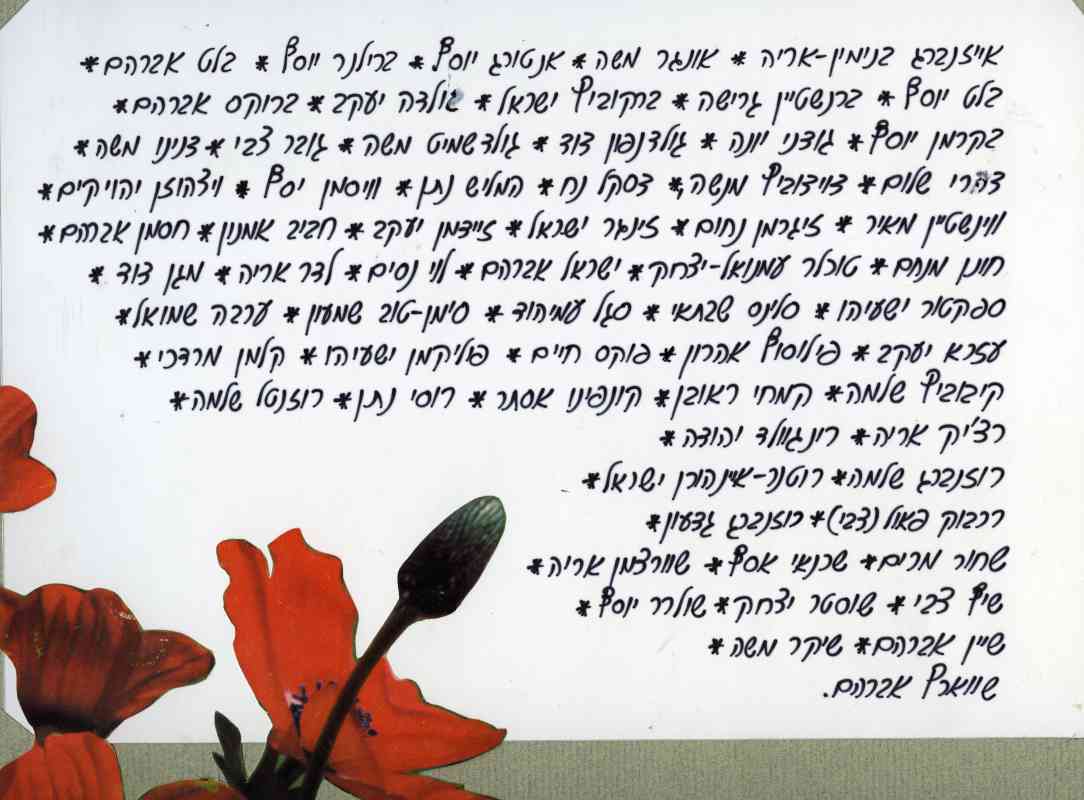 אייזנברג בנימין-אריה * אונגר משה * אנטורג יוסף * ברילנר יוסף * בלט אברהם *
בלט יוסף * ברנשטיין גרישה * ברקוביץ ישראל * גולדה יעקב * ברוקס אברהם *
בקרמן יוסף * גודני יונה * גולדנפון דוד * גולדשמיט משה * גובר צבי * דנינו משה *
דהרי שלום * דוידוביץ מנשה * דסקל נח * המליש נתן * וויסמן יסף * ויצהוזן יהויקים *
ויינשטיין מאיר * זיגרמן נחום * זינגר ישראל * זיידמן יעקב * חביב אמנון * חסמן אברהם *
חונן מנחם * טוכלר עמנואל-יצחק * ישראל אברהם * לוי נסים * לדר אריה * מגן דוד *
ספקטור ישעיהו * סלינס שבתאי * סגל עמיהוד * סימן-טוב שמעון * ערבה שמואל *
עזרא יעקב * פילוסוף אהרון * פוקס חיים * פוליקמן ישעיהו * קלמן מרדכי *
קיבוביץ שלמה * קמחי ראובן * קונפינו אסתר * רוסי נתן * רוזנטל שלמה *
רצ'יק אריה * רינגוולד יהודה *
רוזנברג שלמה * רוטנר-איינהורן ישראל *
רכבוק פאול (צבי) * רוזנברג גדעון *
שחור מרים * שכנאי אסף * שוורצמן אריה *
שיף צבי * שוסטר יצחק * שולרר יוסף *
שיין אברהם * שיקר משה *
שווארץ אברהם.